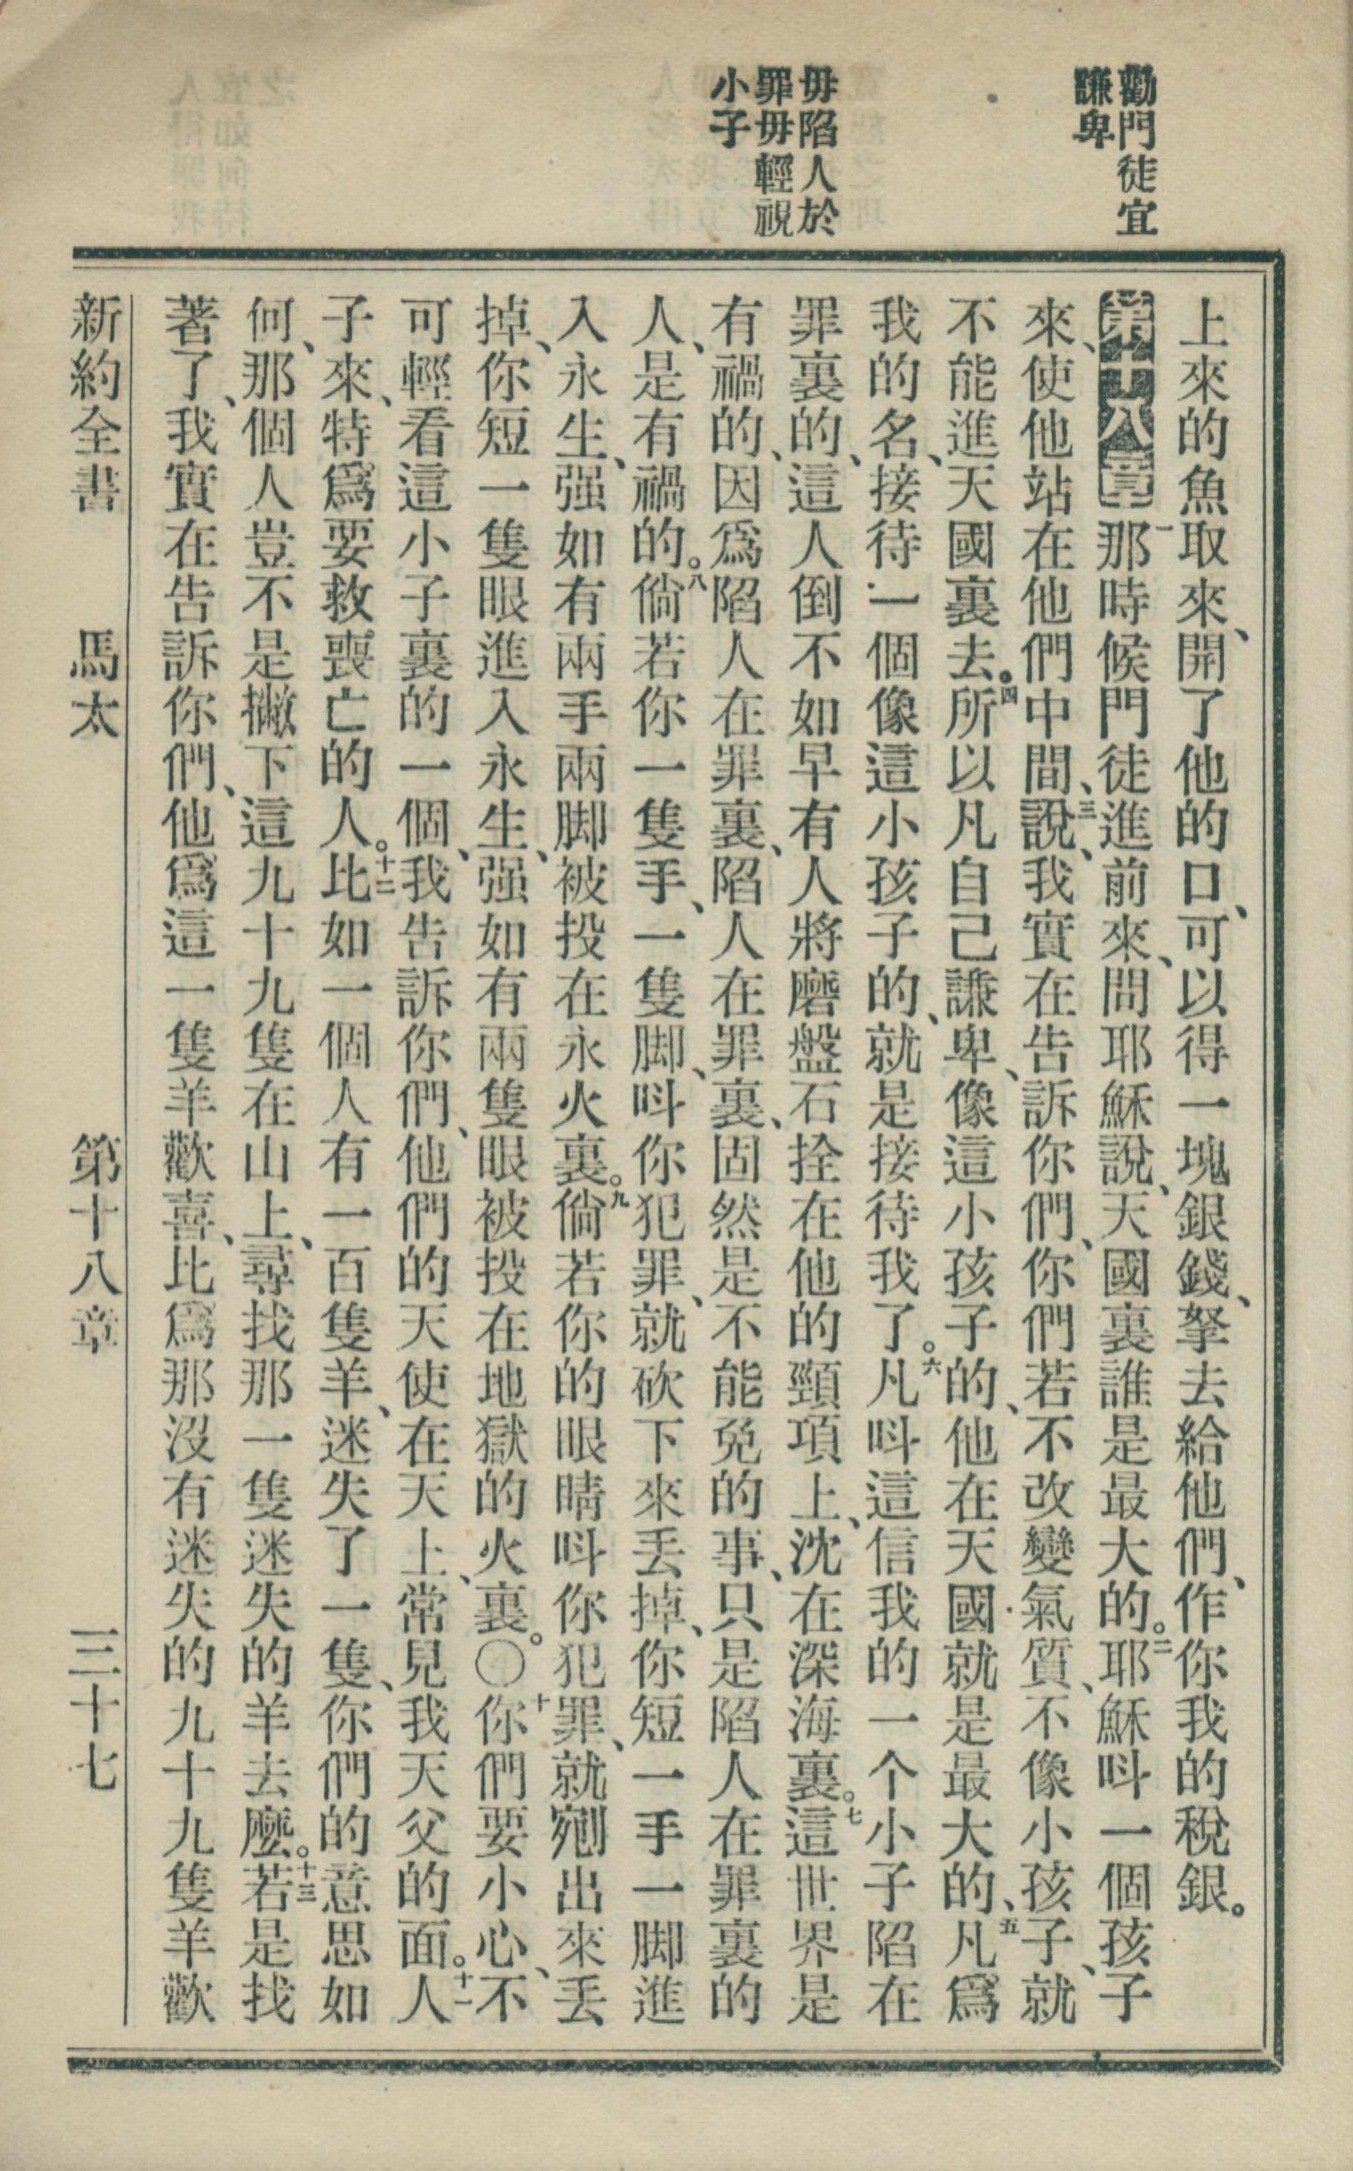 勸門徒宜
謙卑
毋陷人於
罪毋輕視
小子
上來的魚取來、開了他的口、可以得一塊銀錢、拏去給他們、作你我的稅銀。
第十八章一那時候門徒進前來、問耶穌說、天國裏誰是最大的。二耶穌呌一個孩子
來、使他站在他們中間、三說、我實在告訴你們、你們若不改變氣質、不像小孩子、就
不能進天國裏去。四所以凡自己謙卑、像這小孩子的、他在天國就是最大的、五凡爲
我的名、接待一個像這小孩子的、就是接待我了。六凡呌這信我的一个小子陷在
罪裏的、這人倒不如早有人將磨盤石拴在他的頸項上、沈在深海裏。七這世界是
有禍的、因爲陷人在罪裏、陷人在罪裏、固然是不能免的事、只是陷人在罪裏的
人、是有禍的。八倘若你一隻手、一隻脚、呌你犯罪、就砍下來丟掉、你短一手一脚進
入永生、强如有兩手兩脚被投在永火裏。九倘若你的眼睛呌你犯罪、就剜出來丟
掉、你短一隻眼進入永生、强如有兩隻眼被投在地獄的火裏。〇十你們要小心、不
可輕看這小子裏的一個、我告訴你們、他們的天使在天上、常見我天父的面。十一人
子來、特爲要救喪亡的人。十二比如一個人有一百隻羊、迷失了一隻、你們的意思如
何、那個人豈不是撇下這九十九隻在山上、尋找那一隻迷失的羊去麽。十三若是找
著了、我實在告訴你們、他爲這一隻羊歡喜、比爲那沒有迷失的九十九隻羊歡
新約全書　馬太　第十八章　三十七